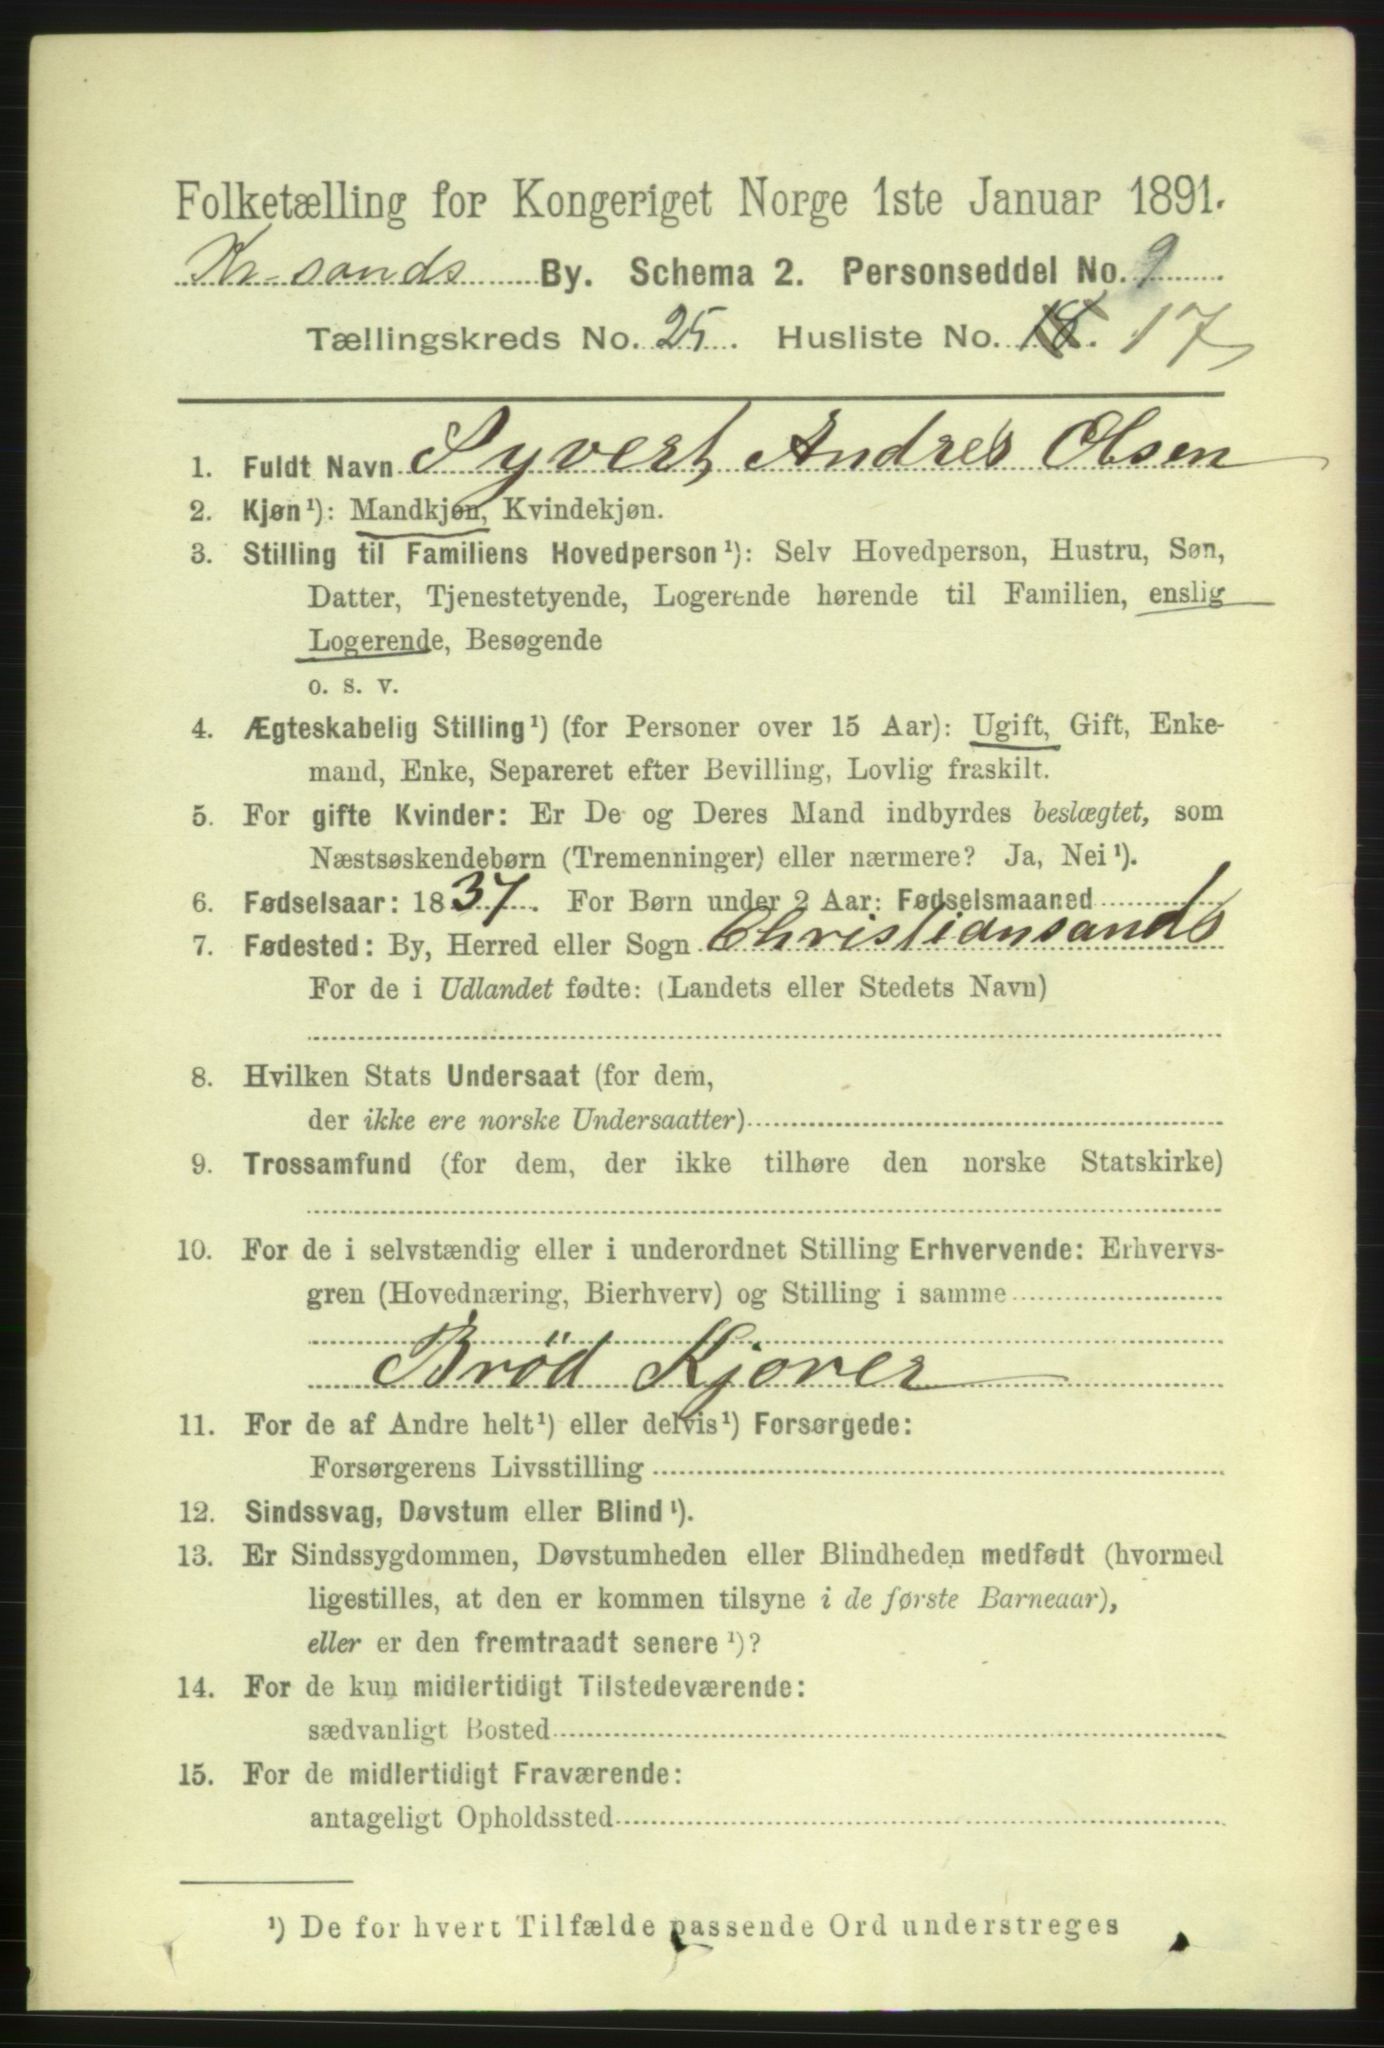 Folketælling for Kongeriget Norge 1ste Januar 1891.
Kr-sands By. Schema 2. Personseddel No. 9
Tællingskreds No. 25. Husliste No. 18. 17
1. Fuldt Navn Syvert Andres Olsen
2. Kjøn¹): Mandkjøn, Kvindekjøn.
3. Stilling til Familiens Hovedperson¹): Selv Hovedperson, Hustru, Søn,
Datter, Tjenestetyende, Logerende hørende til Familien, enslig
Logerende, Besøgende
o. s. v.
4. Ægteskabelig Stilling¹) (for Personer over 15 Aar): Ugift, Gift, Enke-
mand, Enke, Separeret efter Bevilling, Lovlig fraskilt.
5. For gifte Kvinder: Er De og Deres Mand indbyrdes beslægtet, som
Næstsøskendebørn (Tremenninger) eller nærmere? Ja, Nei¹).
6. Fødselsaar: 1837. For Børn under 2 Aar: Fødselsmaaned
7. Fødested: By, Herred eller Sogn Christiansands
For de i Udlandet fødte: (Landets eller Stedets Navn)
8. Hvilken Stats Undersaat (for dem,
der ikke ere norske Undersaatter)
9. Trossamfund (for dem, der ikke tilhøre den norske Statskirke)
10. For de i selvstændig eller i underordnet Stilling Erhvervende: Erhvervs-
gren (Hovednæring, Bierhverv) og Stilling i samme
Brød Kjører
11. For de af Andre helt¹) eller delvis¹) Forsørgede:
Forsørgerens Livsstilling
12. Sindssvag, Døvstum eller Blind¹).
13. Er Sindssygdommen, Døvstumheden eller Blindheden medfødt (hvormed
ligestilles, at den er kommen tilsyne i de første Barneaar),
eller er den fremtraadt senere¹)?
14. For de kun midlertidigt Tilstedeværende:
sædvanligt Bosted
15. For de midlertidigt Fraværende:
antageligt Opholdssted
¹) De for hvert Tilfælde passende Ord understreges